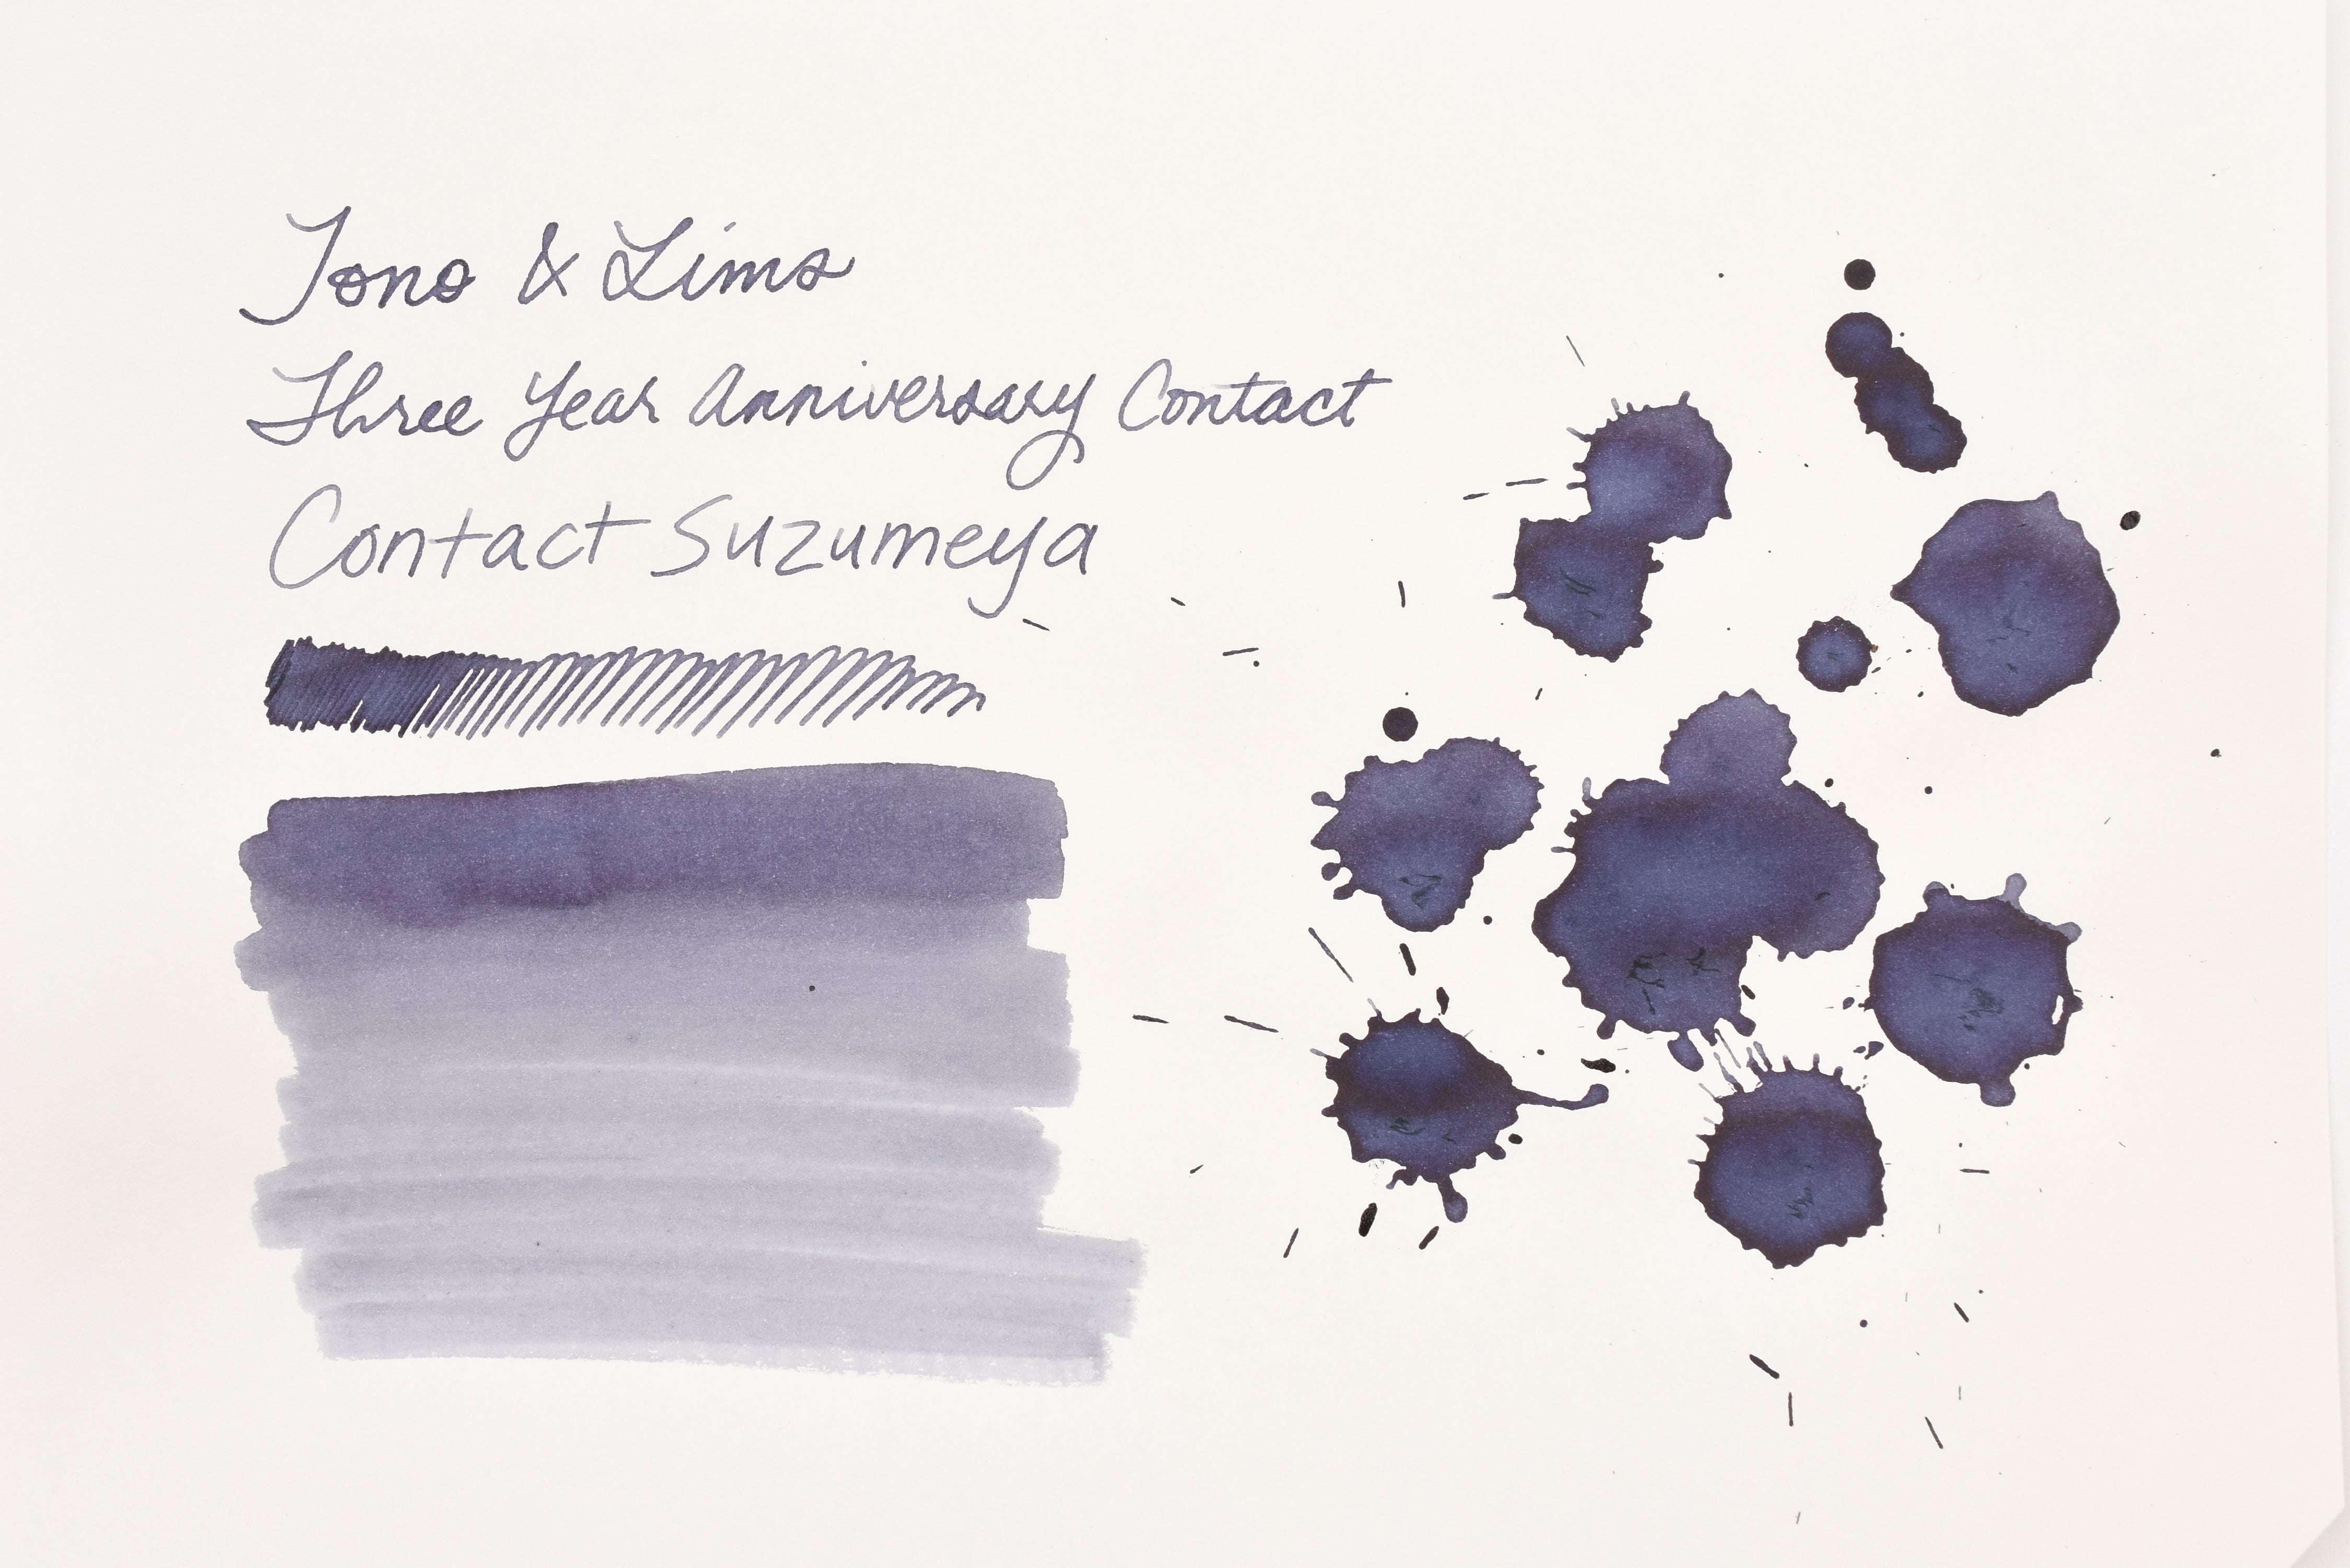 Tono & Lims
Three Year Anniversary Contact
Contact Suzumeya